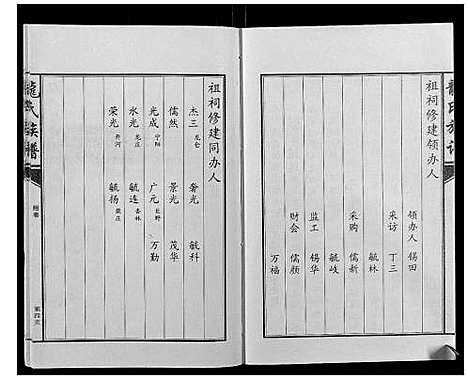 祖祠修建领办人
领办人 锡田
采访 丁三
毓林
采购 儒新
毓岐
监工 锡华
财会 儒颜
万福
祖祠修建同办人
杰三 龙仑 奢光 毓科
儒然 景光 茂华
光成 宁阳 广元 长野 万勤
水光 龙庄 毓连 杏林
荣光 界河 毓杨 龙庄
龙氏族谱
附卷
第四支